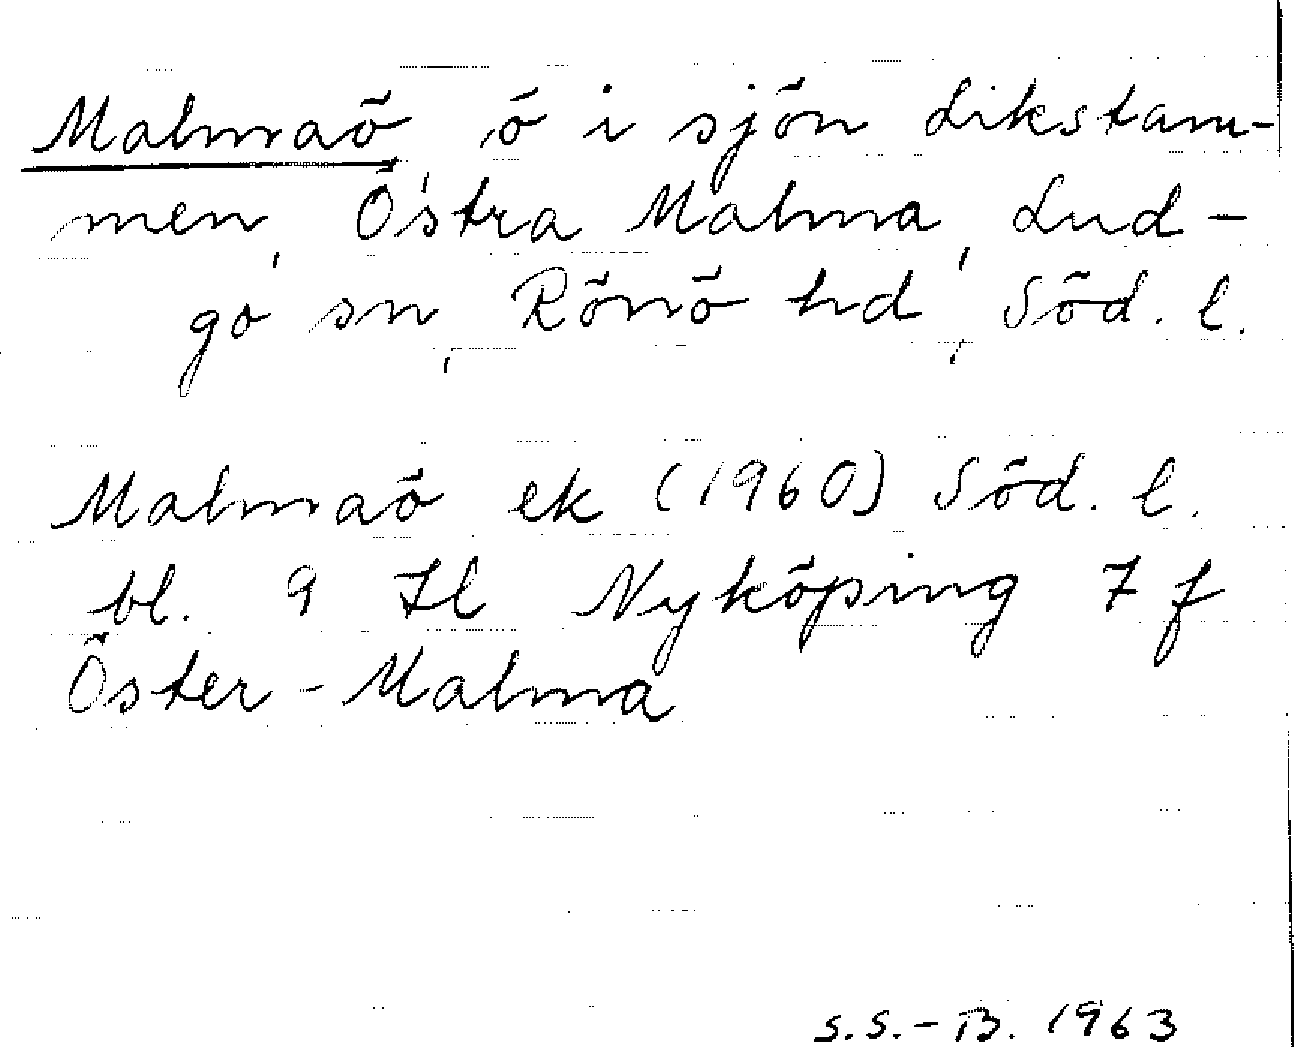 Malmaö, ö i sjön Likstam-
men, Östra Malma, Lud-
gö sn, Rönö hd, Söd. l.
Malmaö ek (1960) Söd. l.
bl. 9 Il Nyköping 7 f
Öster-Malma
S.S.-B. 1963